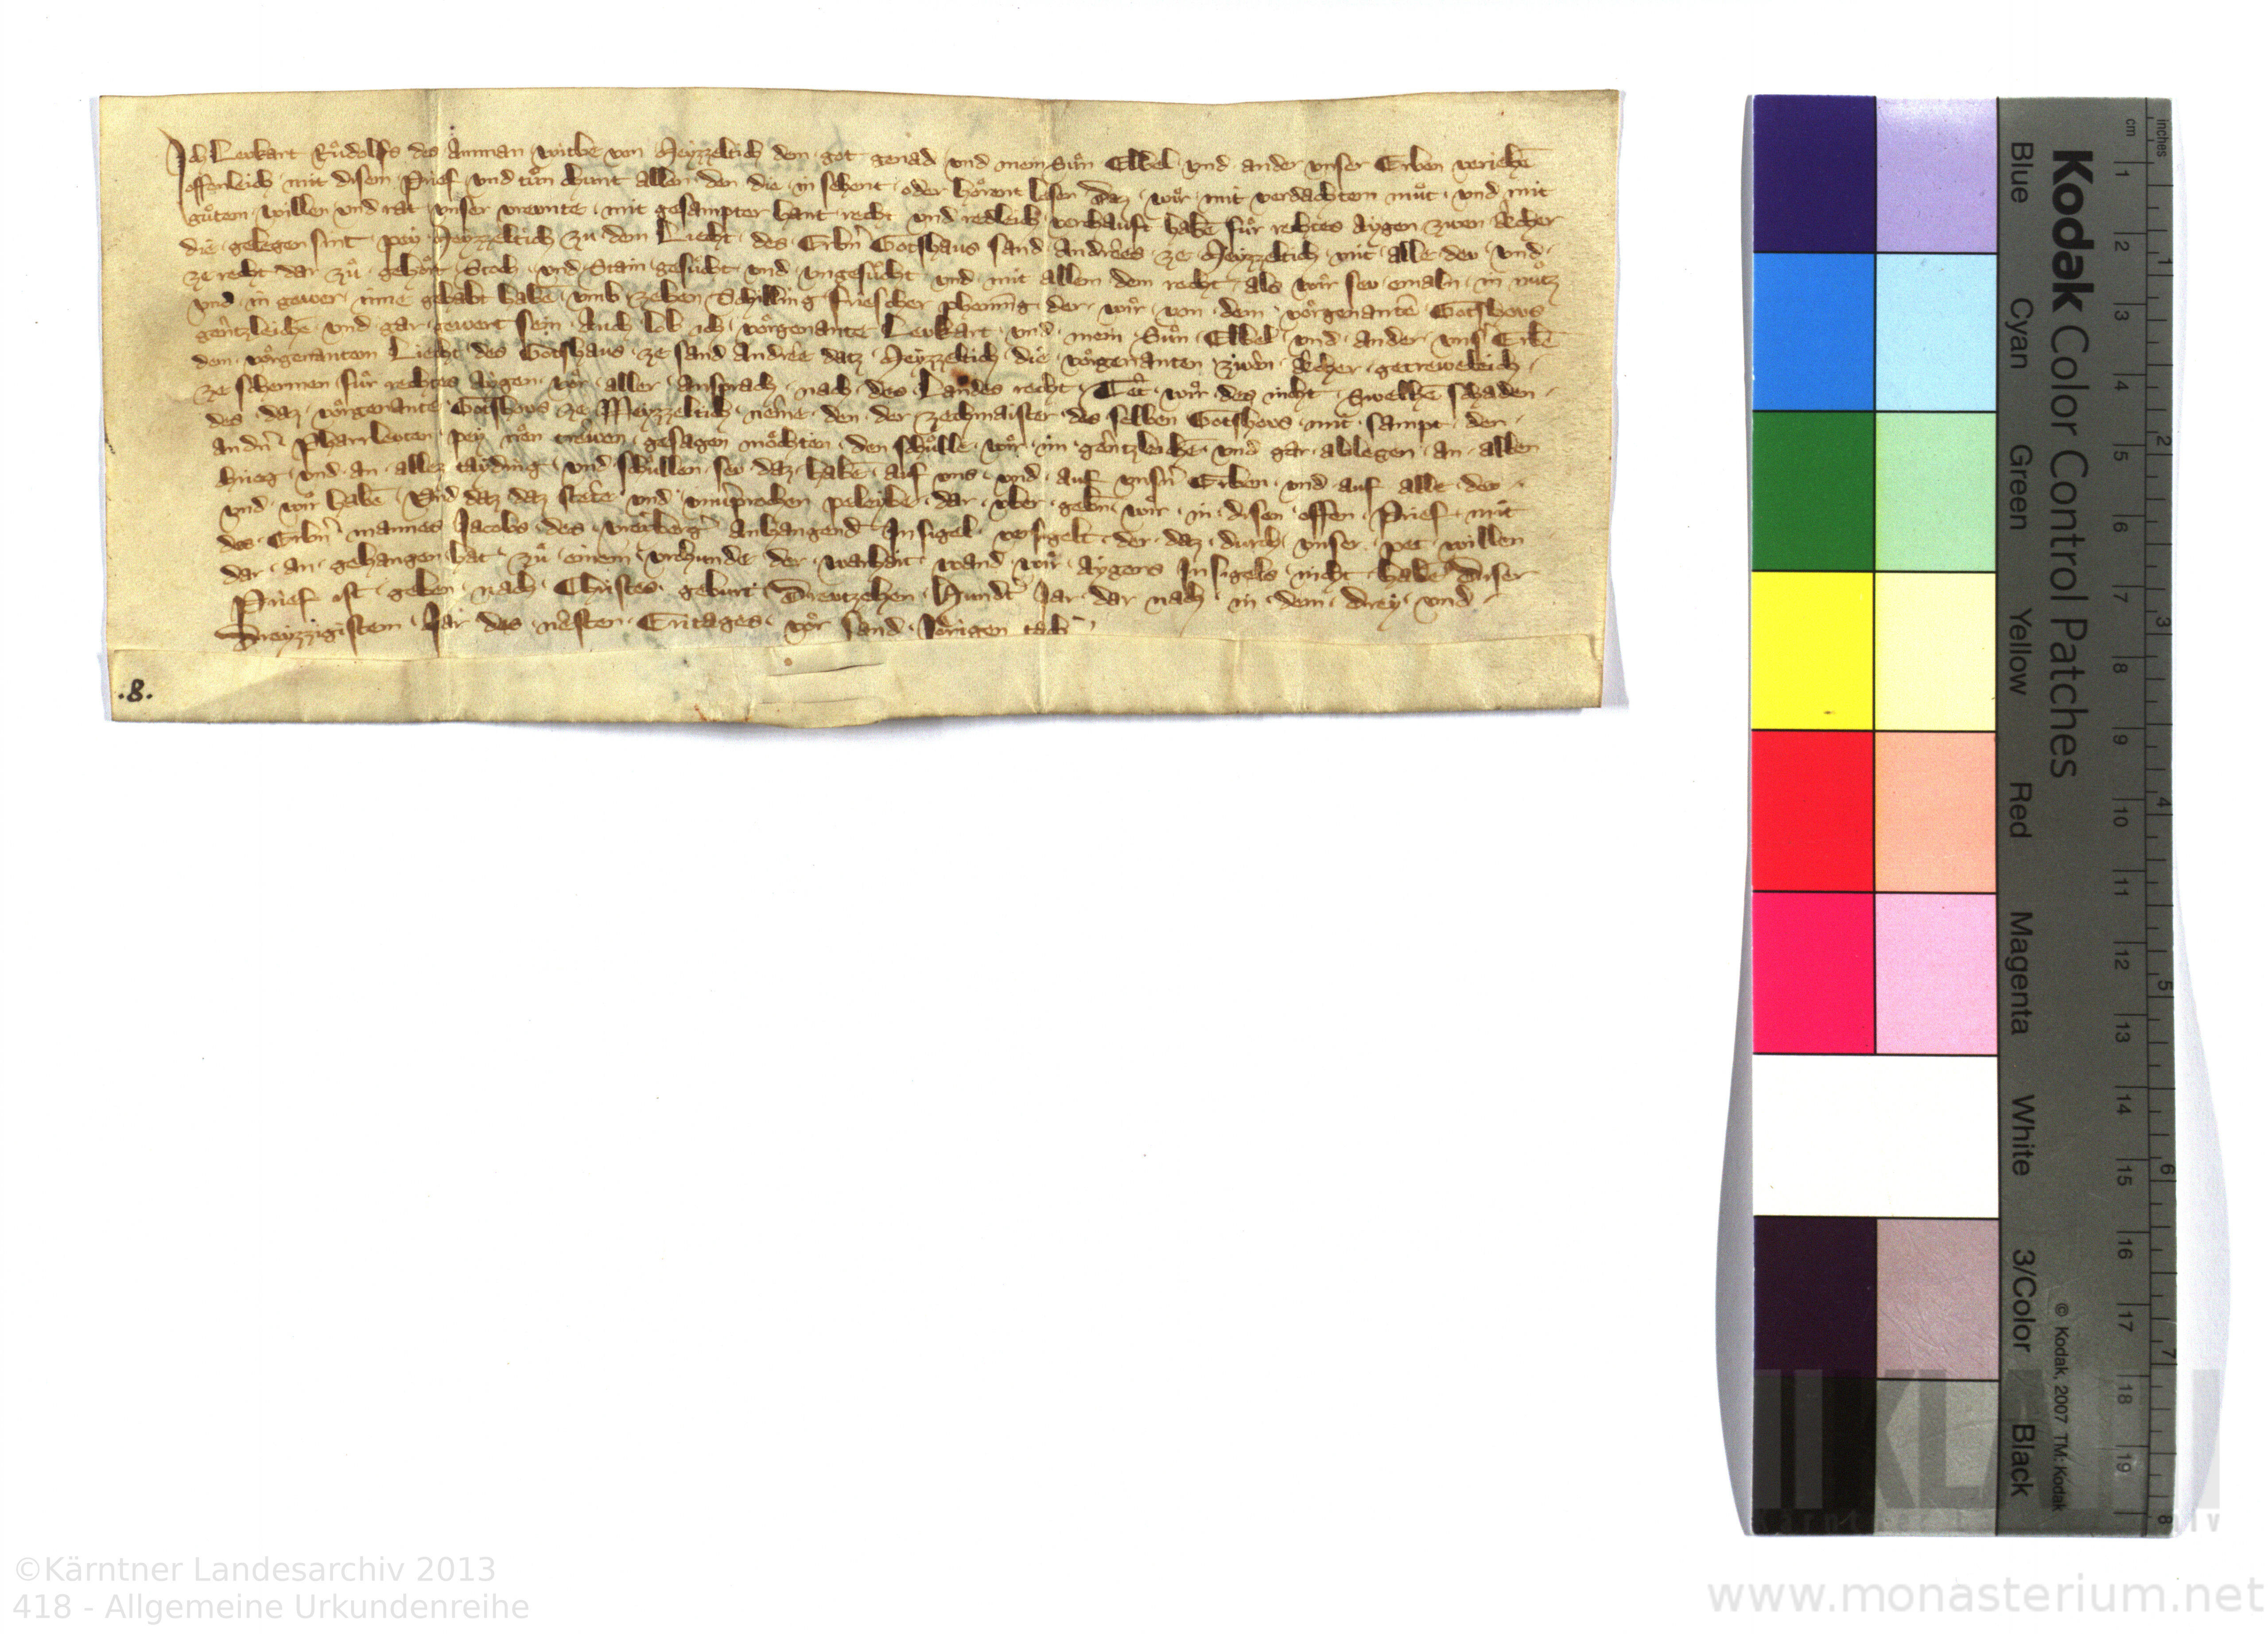 Ich Levkart Růdolfs des Amman witbe von Meyzzeltich dem got genad vnd mein Sůn Elbel vnd ander vnser Erben veriehē
offenleich mit disem Prief vnd tůn chunt allen den die in sehent oder hörent lesen daz wir mit verdachtem můt vnd mit
gůtem willen vnd rat vnser vrevnte mit gesampter hant recht vnd redleich verchauft habē fůr rechtes Aygen zwen Acher
die gelegen sint pey Meyzzeltich zu dem Liecht des Erbn Gotshaus sand Andrees ze Meyzzeltich mit alle dev vnd
ze recht dar zů gehört Stoch vnd Stain gesůcht vnd vngesůcht vnd mit allem dem recht als wir sev emaln in nůtz
vnd in gewer inne gehabt habē vmb zehen Schilling friescher phenning der wir von dem vorgenantē Gotshovs
gentzleichē vnd gar gewert sein Auch lob ich vorgenante Levkart vnd mein Sůn Elbel vnd ander vns Erbē
dem vorgenantem Liecht des Gotshaus ze sand Andree datz Meyzzeltich die vorgenanten zwen Acher getreweleich
ze schermen fůr rechtes Aygen vor aller Ansprach nach des Landes recht Tet wir des nicht Swelhē schaden
des daz vorgenante Gotshovs ze Meyzzeltich neme den der zechmaister des selben Gotshovs mit sampt den
andn Pharrlevten pey iren trewen gesagen möchten den schulle wir im gentzleichē vnd gar ablegen an allen
chrieg vnd an allez tayding vnd schullen sev daz habē auf vns vnd auf vnsn Erben vnd auf alle dev
vnd wir habē Vnd daz daz stete vnd vnuerprochen peleybe dar vber gebn wir in disen offen Prief mit
des Erbn mannes Jacobs des anhangend Insigel versigelt der daz durch vnser pet willen
dar an gehangen hat zů einem vrchunde der warhait wand wir Aygens Insigels nicht habē Diser
Prief ist geben nach Christes geburt Drevtzehen Hundt Jar dar nach in dem drey vnd
Dreyzzigistem Jar des nesten Eritages vor sand Jörigen tach
.8.
Kodak Color Control Patches
Blue Cyan Green Yellow Red Magenta White 3/Color Black
© Kodak, 2007 TM: Kodak
inches 1 2 3 4 5 6 7 8
cm 1 2 3 4 5 6 7 8 9 10 11 12 13 14 15 16 17 18 19
KLA
©Kärntner Landesarchiv 2013
418 - Allgemeine Urkundenreihe
www.monasterium.net